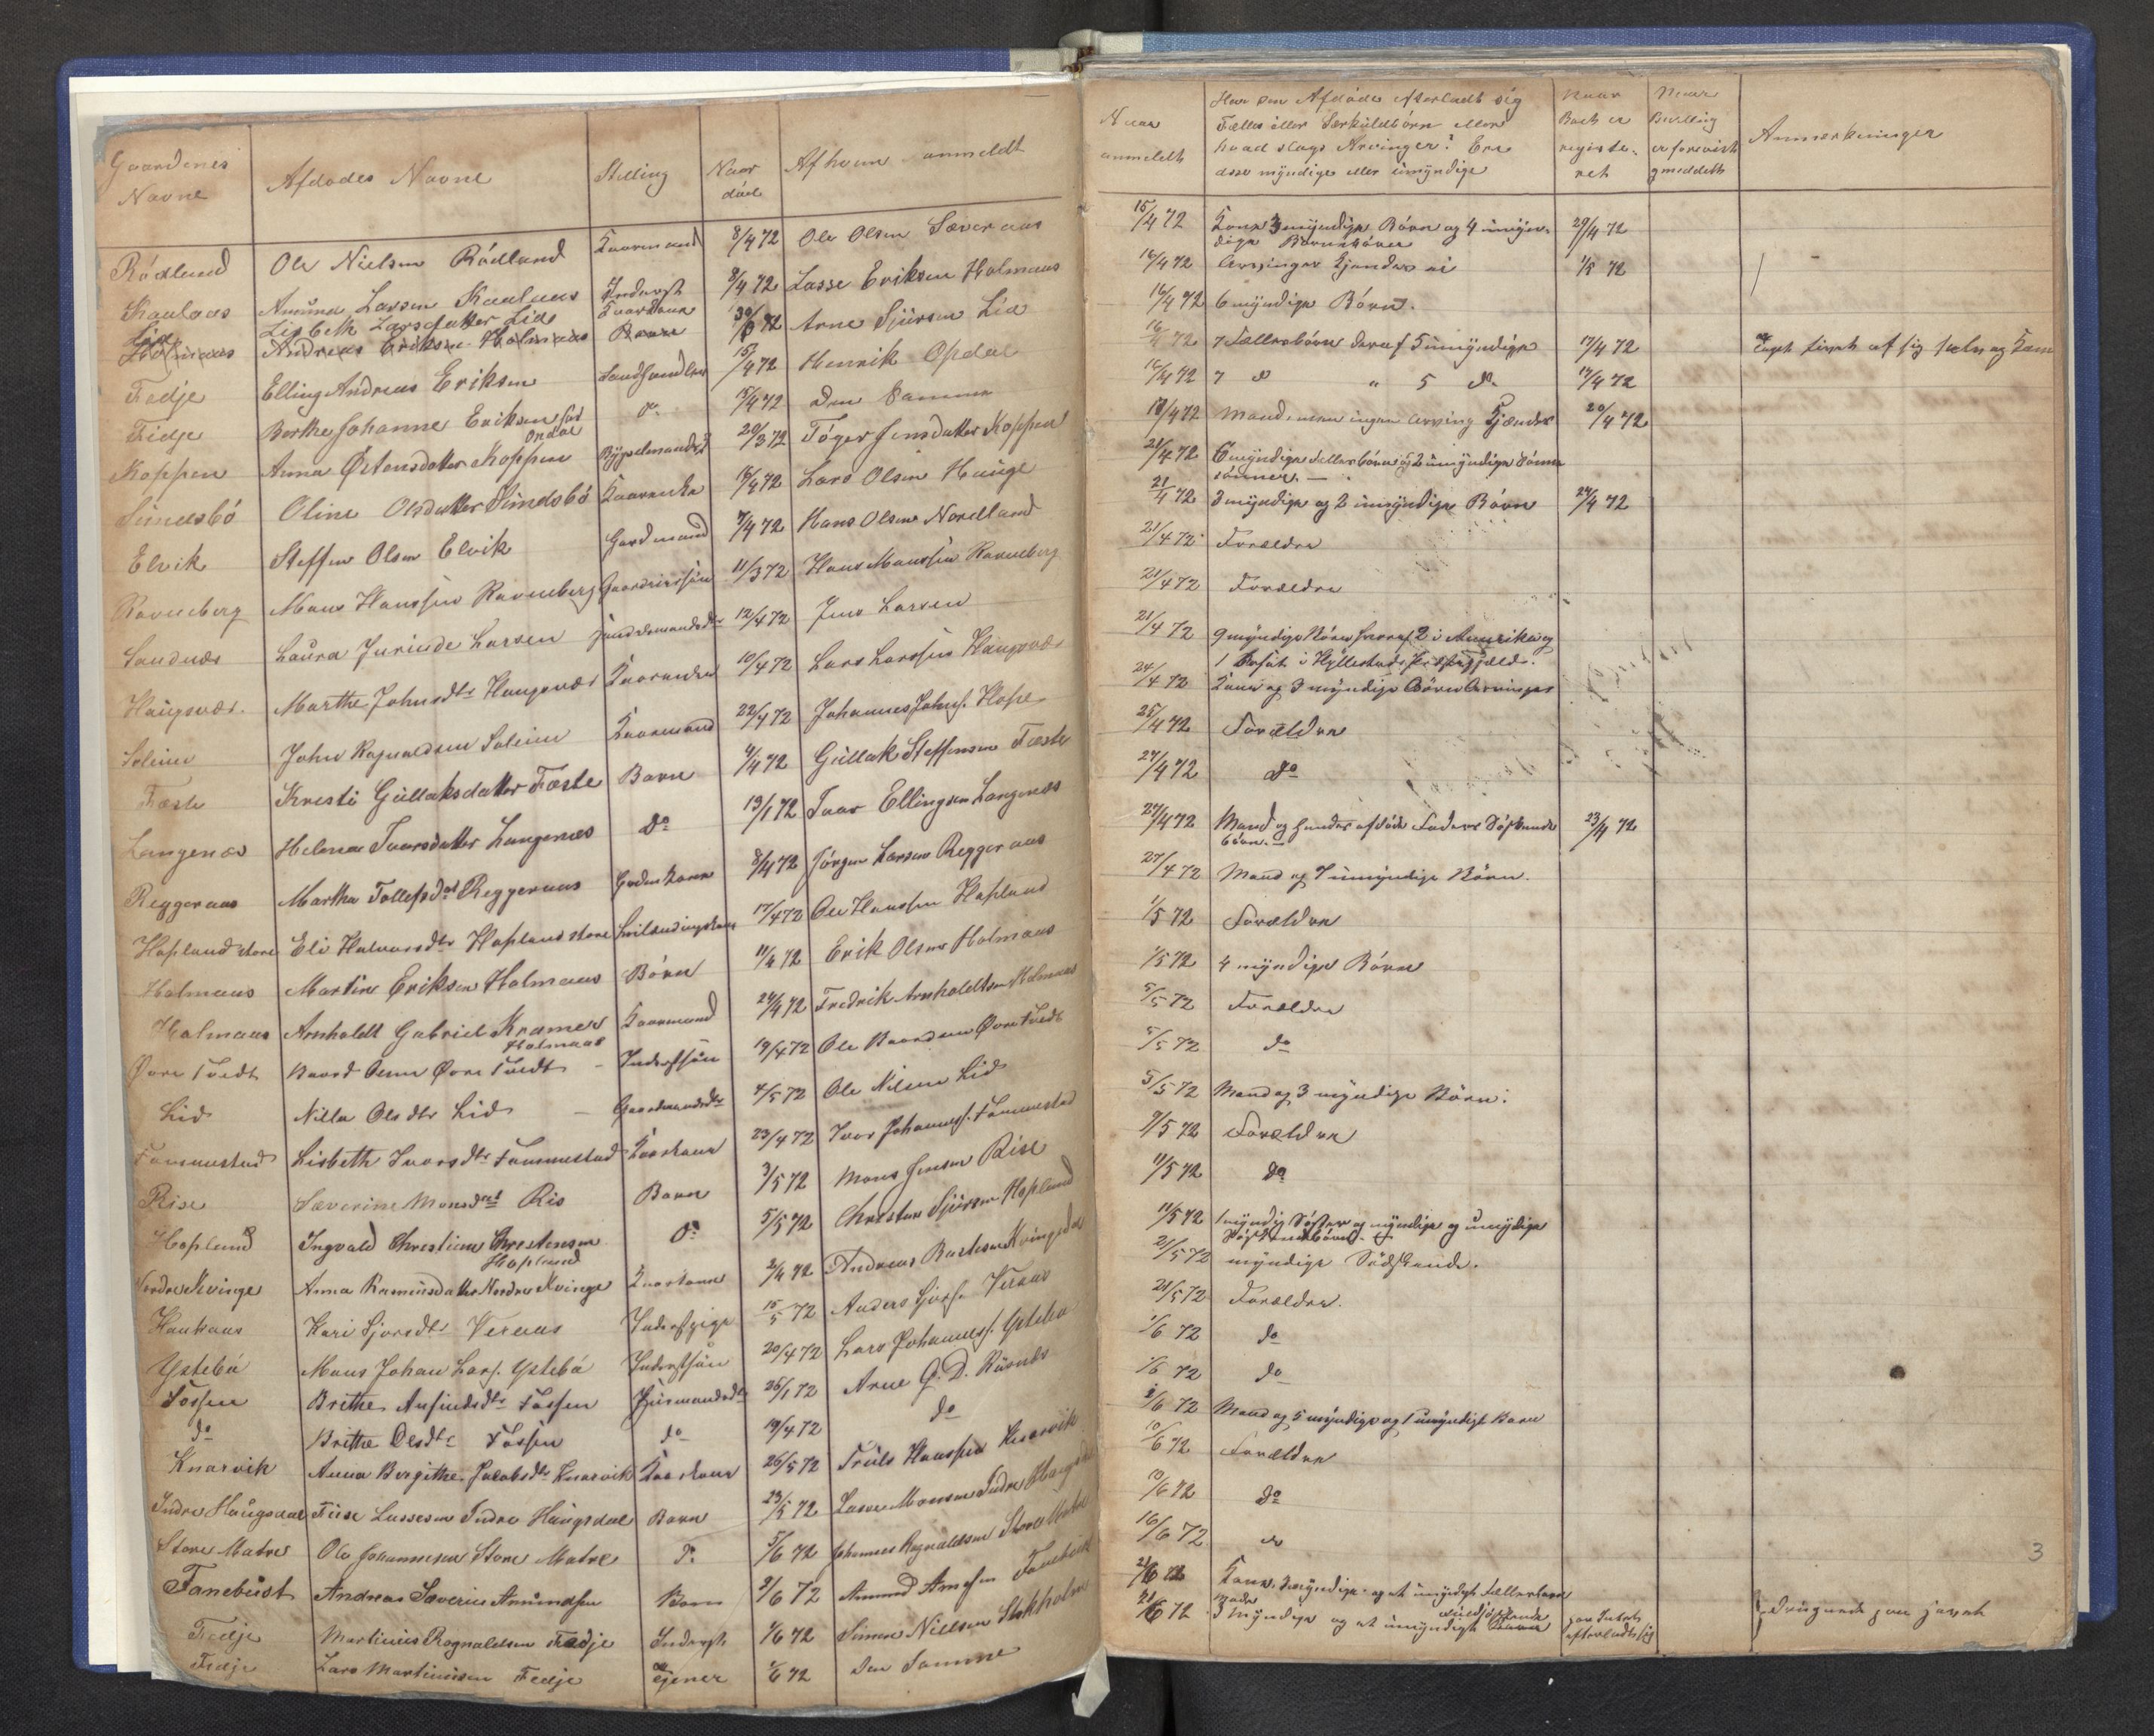 Gaardenes Navne | Afdødes Navne | Stilling | Naar død | Af hvem anmeldt
Rödland | Ole Nielsen Rödland | Kaarmand | 8/4 72 | Ole Olsen Sæveraas
Kaalaas | Amund Larsen Kaalaas | Inderst | 8/4 72 | Lasse Eriksen Holmaas
Lid | Lisbeth Larsdatter Lid | Kaarkone | 30/3 72 | Arne Sjursen Lid
Holmaas | Andreas Eriksen Holmaas | Barn
Fedje | Elling Andreas Eriksen | Landhandler | 15/4 72 | Henrik Opdal
Fedje | Berthe Johanne Eriksen fød Opdal | do | 15/4 72 | den Samme
Koppen | Anna Østensdatter Koppen | 20/3 72 | Töger Jensdatter Koppen
Sundsbö | Oline Olsdatter Sundsbö | Kaarenke | 15/4 72 | Lars Olsen Hauge
Elvik | Steffen Olsen Elvik | Gardmand | 7/4 72 | Hans Olsen Nordland
Ravneberg | Mons Hanssen Ravneberg | 11/3 72 | Hans Monssen Ravneberg
Sandnæs | Laura Jurinde Larsen | 12/4 72 | Jens Larsen
Haugsvær | Marthe Johnsdtr Haugsvær | Kaarenke | 10/4 72 | Lars Larssen Haugsvær
Soleim | John Ragnaldsen Soleim | Kaarmand | 22/4 72 | Johannes Johns. Hope
Fæste | Kresti Gullaksdatter Fæste | Barn | 4/4 72 | Gullak Steffensen Fæste
Langenæs | Helena Ivarsdatter Langenæs | do | 13/1 72 | Ivar Ellingsen Langenæs
Reggeraas | Martha Tollefsdat Reggeraas | 8/4 72 | Jörgen Larsen Reggeraas
Hopland store | Eli Halvorsdtr Hopland store | 17/4 72 | Ole Hanssen Hopland
Holmaas | Martin Eriksen Holmaas | Börn | 11/4 72 | Erik Olsen Holmaas
Holmaas | Arnholdt Gabriel Kramer Holmaas | Kaarmand | 24/4 72 | Fredrik Arnholdtsen Holmaas
Øvre Tvedt | Baard Olsen Øvre Tvedt | Inderstsön | 19/4 72 | Ole Baardsen Øvre Tvedt
Lid | Nilla Olsdtr Lid | Gaardmandsdtr | 4/5 72 | Ole Nilsen Lid
Fammestad | Lisbeth Ivarsdtr Fammestad | Kaarkone | 23/4 72 | Ivar Johanness. Fammestad
Rise | Sæverine Monsdat Ris | Barn | 3/5 72 | Mons Jensen Rise
Hopland | Ingvald Christian Christensen Hopland | do | 5/5 72 | Christen Sjursen Hopland
Nordre Kvinge | Anna Rasmusdatter Nordre Kvinge | Kaarkone | 2/4 72 | Andreas Kvingedal
Haukaas | Kari Sjursdtr Veraas | Inderstpige | 15/5 72 | Anders Sjurs. Veraas
Ystebö | Mons Johan Lars. Ystebö | Inderstsön | 20/4 72 | Lars Johanness. Ystebø
Fossen | Brithe Anfindsdtr Fossen | Husmandsdtr | 25/1 72 | Arne G. D. Risnæs
do | Brithe Olsdtr Fossen | do | 19/4 72 | do
Knarvik | Anna Birgithe Jakobsdtr Knarvik | Kaarkone | 26/5 72 | Truls Hanssen Knarvik
Indre Haugsdal | Lassesen Indre Haugsdal | Barn | 23/5 72 | Lasse Monsen Indre Haugsdal
Store Matre | Ole Johannesen Store Matre | do | 5/6 72 | Johannes Ragnaldsen Store Matre
Fanebust | Andreas Severin Amundsen | Barn | 9/6 72 | Amund Fanebust
Fedje | Martinius Ragnaldsen Fedje | Inderst | 1/6 72 | Simon Nielsen Stokholm
Fedje | Lars Martiniusen Fedje | Tjener | 1/6 72 | den Samme
Naar anmeldt | Har den Afdöde efterladt sig Fælles eller Særkuldbörn eller hvad slags Arvinger? Ere disse myndige eller umyndige | Naar Boet er registeret | Naar Bevilling er forevist | Anmærkninger
15/4 72 | Kone 3 myndige Börn og 4 umyndige Börnebörn | 29/4 72
16/4 72 | Arvinger kjendes ei | 1/5 72
16/4 72 | 6 myndige Börn.
16/4 72 | 7 Fællesbörn deraf 5 umyndige | 17/4 72
16/4 72 | 7 do " 5 do | 17/4 72
18/4 72 | Mand, men ingen Arving kjendes | 20/4 72
21/4 72 | 6 myndige Fællesbörn og 2 umyndige Sönnesönner.
21/4 72 | 3 myndige og 2 umyndige Börn | 24/4 72
21/4 72 | Forældre
21/4 72 | Forældre
21/4 72 | 9 myndige Börn hvoraf 2 i Amerika og 1 bosat i Hyllestad Præstegjæld.
24/4 72 | Kone og 3 myndige Börn Arvinger
25/4 72 | Forældre
27/4 72 | do
27/4 72 | Mand og hendes afdöde Faders Söskendebörn. | 23/4 72
27/4 72 | Mand og 7 umyndige Börn.
1/5 72 | Forældre
1/5 72 | 4 myndige Börn
5/5 72 | Forældre
5/5 72 | do
5/5 72 | Mand og 3 myndige Börn.
9/5 72 | Forældre
11/5 72 | do
11/5 72 | 1 myndig Söster og myndige og umyndige Söskendebörn.
21/5 72 | myndige Södskende.
21/5 72 | Forældre.
1/6 72 | do
1/6 72 | do
2/6 72 | Mand og 5 myndige og 1 umyndigt Barn
10/6 72 | Forældre
10/6 72 | do
16/6 72 | do
21/6 72 | Kone, 3 myndige og et umyndigt Fællesbarn
21/6 72 | 3 myndige og et umyndigt
3